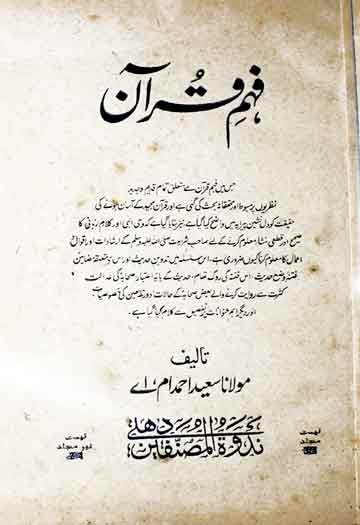 فہمِ قرآن
جس میں فہم قرآن سے متعلق تمام قدیم و جدید
نظریوں پر مبسوط اور محققانہ بحث کی گئی ہے اور قرآن مجید کے آسان ہونے کی
حقیقت کو دل نشین پیرایہ میں واضح کیا گیا ہے نیز بتایا گیا ہے کہ وحی الٰہی اور کلام ربانی کا
صحیح اور قطعی منشا معلوم کرنے کے لیے صاحب شریعت صلی اللہ علیہ وسلم کے ارشادات اور اقوال
اعمال کا معلوم کرنا کیوں ضروری ہے، اس سلسلہ میں تدوین حدیث اور اس کے متعلقہ مضامین
فتنۂ وضع حدیث، اس فتنہ کی روک تھام، حدیث کے پایۂ اعتبار صحابہ کی عدالت
کثرت سے روایت کرنے والے بعض صحابہ کے حالات دور تابعین کی خصوصیات
اور دیگر اہم عنوانات پر تفصیل سے کلام کیا گیا ہے۔
تالیف
مولانا سعید احمد ام، اے
ندوۃ المصنفین دہلی
قیمت
مجلد
قیمت
غیر مجلد